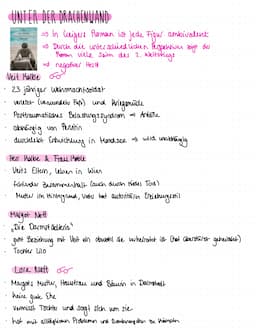 UNTER DER DRACHENWAND
⇒ In Geigers Roman ist jede Figur ambivalent
⇒ Durch die unterschiedlichen Perspektiven zeigt der
Roman viele Seiten des 2. Weltkriegs
⇒ negativer Held
Veit Kolbe
· 23 jähriger Wehrmachtsoldat
· verletzt und Kriegsmüde
· Posttraumatisches Belastungssyndrom → Anfälle
· abhängig von Pervitin
· durchlebt Entwicklung in Mondsee → wird unabhängig
Herr Kolbe & Frau Kolbe
· Veits Eltern, leben in Wien
· fehlender Zusammenhalt (auch durch Hildes Tod)
· Mutter im Hintergrund, Vater hat autoritären Erziehungsstil
Margot Neff
· „Die Darmstädterin"
· gute Beziehung mit Veit ein obwohl sie verheiratet ist
· Tochter Lilo
Lore Neff
· Margots Mutter, Hausfrau und Bäuerin in Darmstadt
· keine gute Ehe
· vermisst Tochter und sorgt sich um sie
· hat mit alltäglichen Problemen und Bombenangriffen zu kämpfen